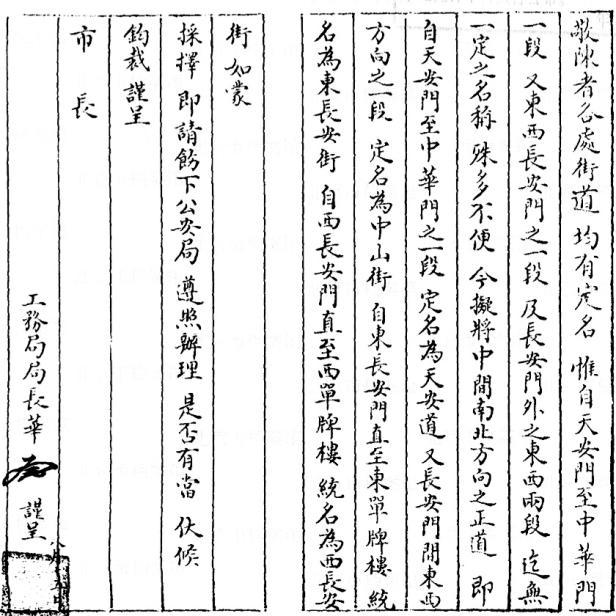 敬陳者各處街道 均有定名 惟自天安門至中華門
一段 又東西長安門之一段 及長安門外之東西兩段 迄無
一定之名稱 殊多不便 今擬將中間南北方向之正道 即
自天安門至中華門之一段 定名為天安道 又長安門間東西
方向之一段 定名為中山街 自東長安門直至東單牌樓 統
名為東長安街 自西長安門直至西單牌樓 統名為西長安
街 如蒙
採擇 即請飭下公安局 遵照辦理 是否有當 伏候
鈞裁 謹呈
市長
工務局局長華
謹呈